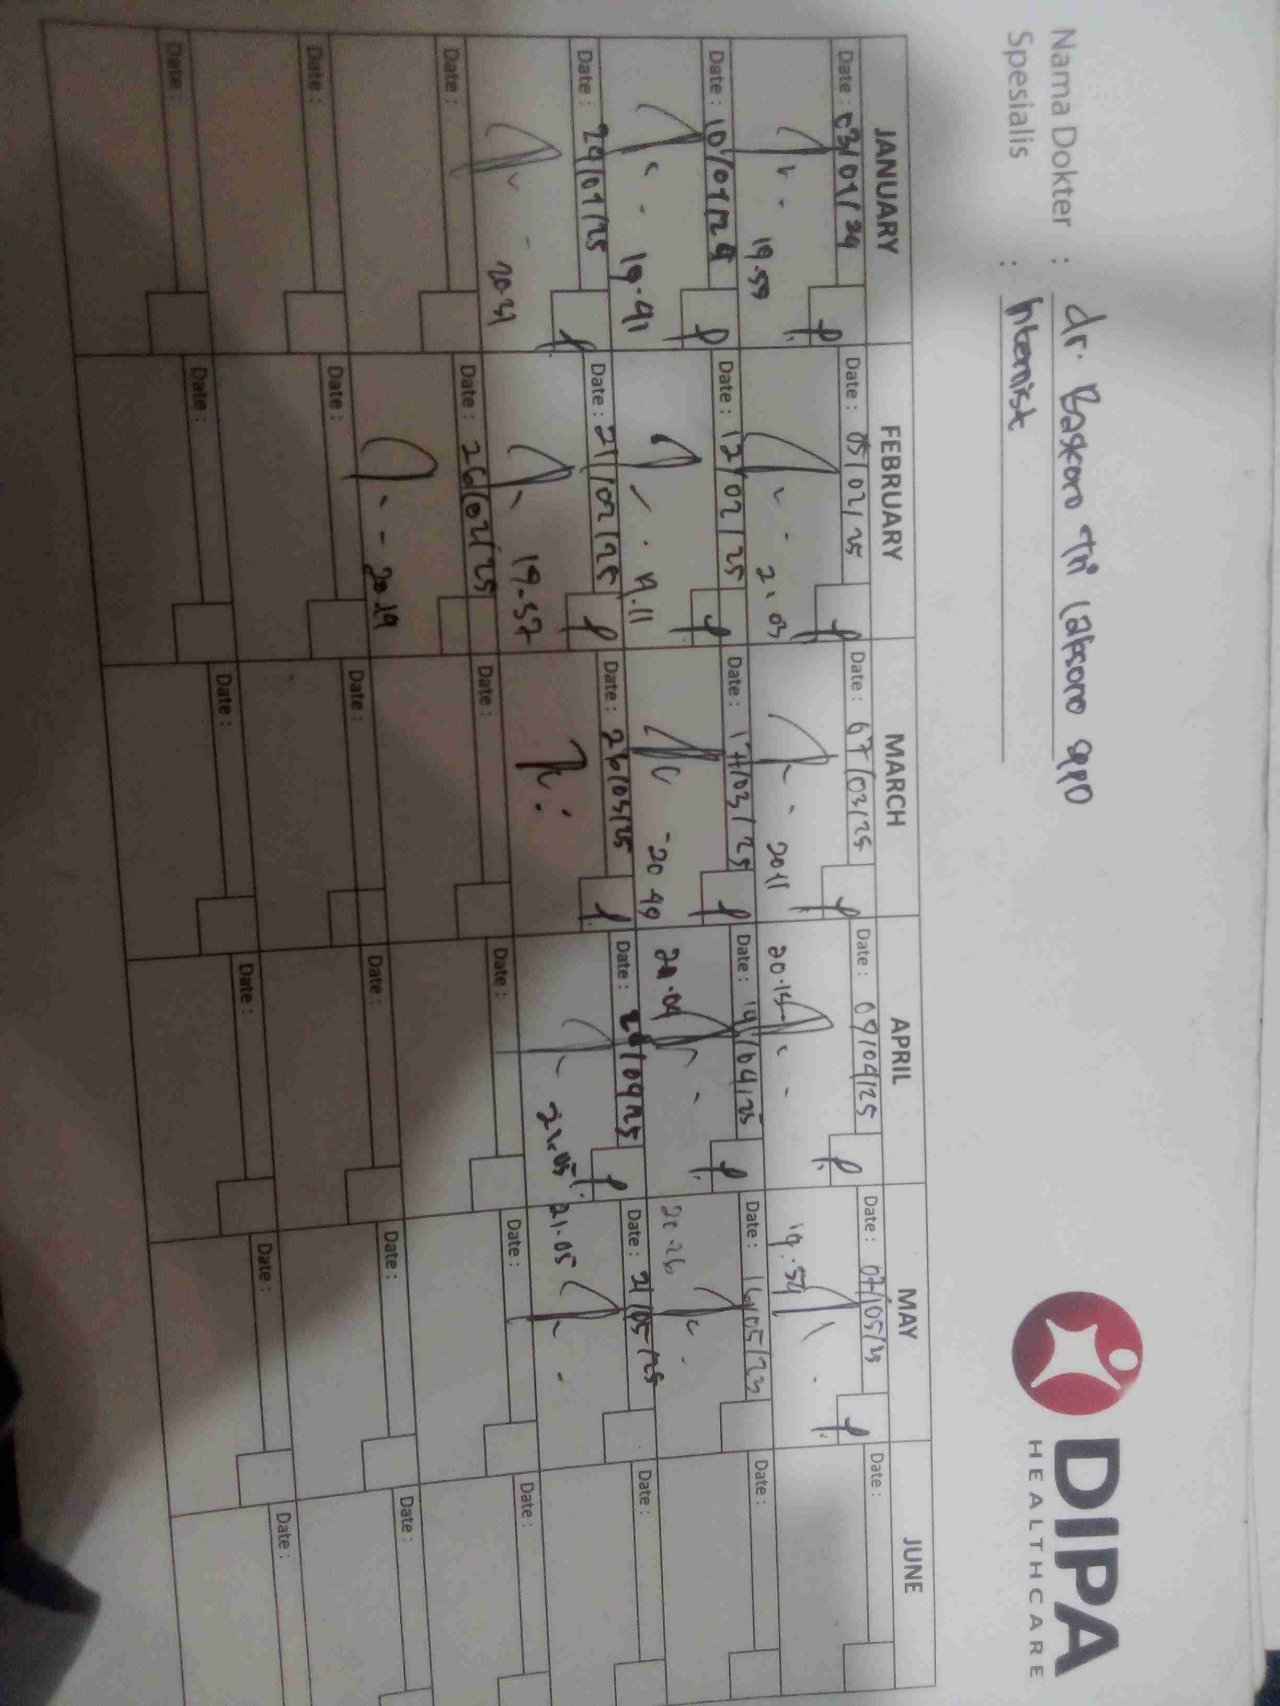 DIPA
HEALTHCARE
Nama Dokter : dr. Baskoro Tri Laksono SPPD
Spesialis : Internist
JANUARY FEBRUARY MARCH APRIL MAY JUNE
Date : 03/01/24 Date : 05/02/25 Date : 07/03/25 Date : 09/04/25 Date : 07/05/25 Date :
19.59 20.11 20.15 19.54
Date : 10/01/24 Date : 12/02/25 Date : 17/03/25 Date : 14/04/25 Date : 14/05/25 Date :
19.41 19.11 20.40 20.04 20.26
Date : 24/01/25 Date : 21/02/25 Date : 26/03/25 Date : 28/04/25 Date : 21/05/25 Date :
20.31 19.57 21.05 21.05
Date : Date : 26/02/25 Date : Date : Date : Date :
20.19
Date : Date : Date : Date : Date : Date :
Date : Date : Date : Date : Date : Date :